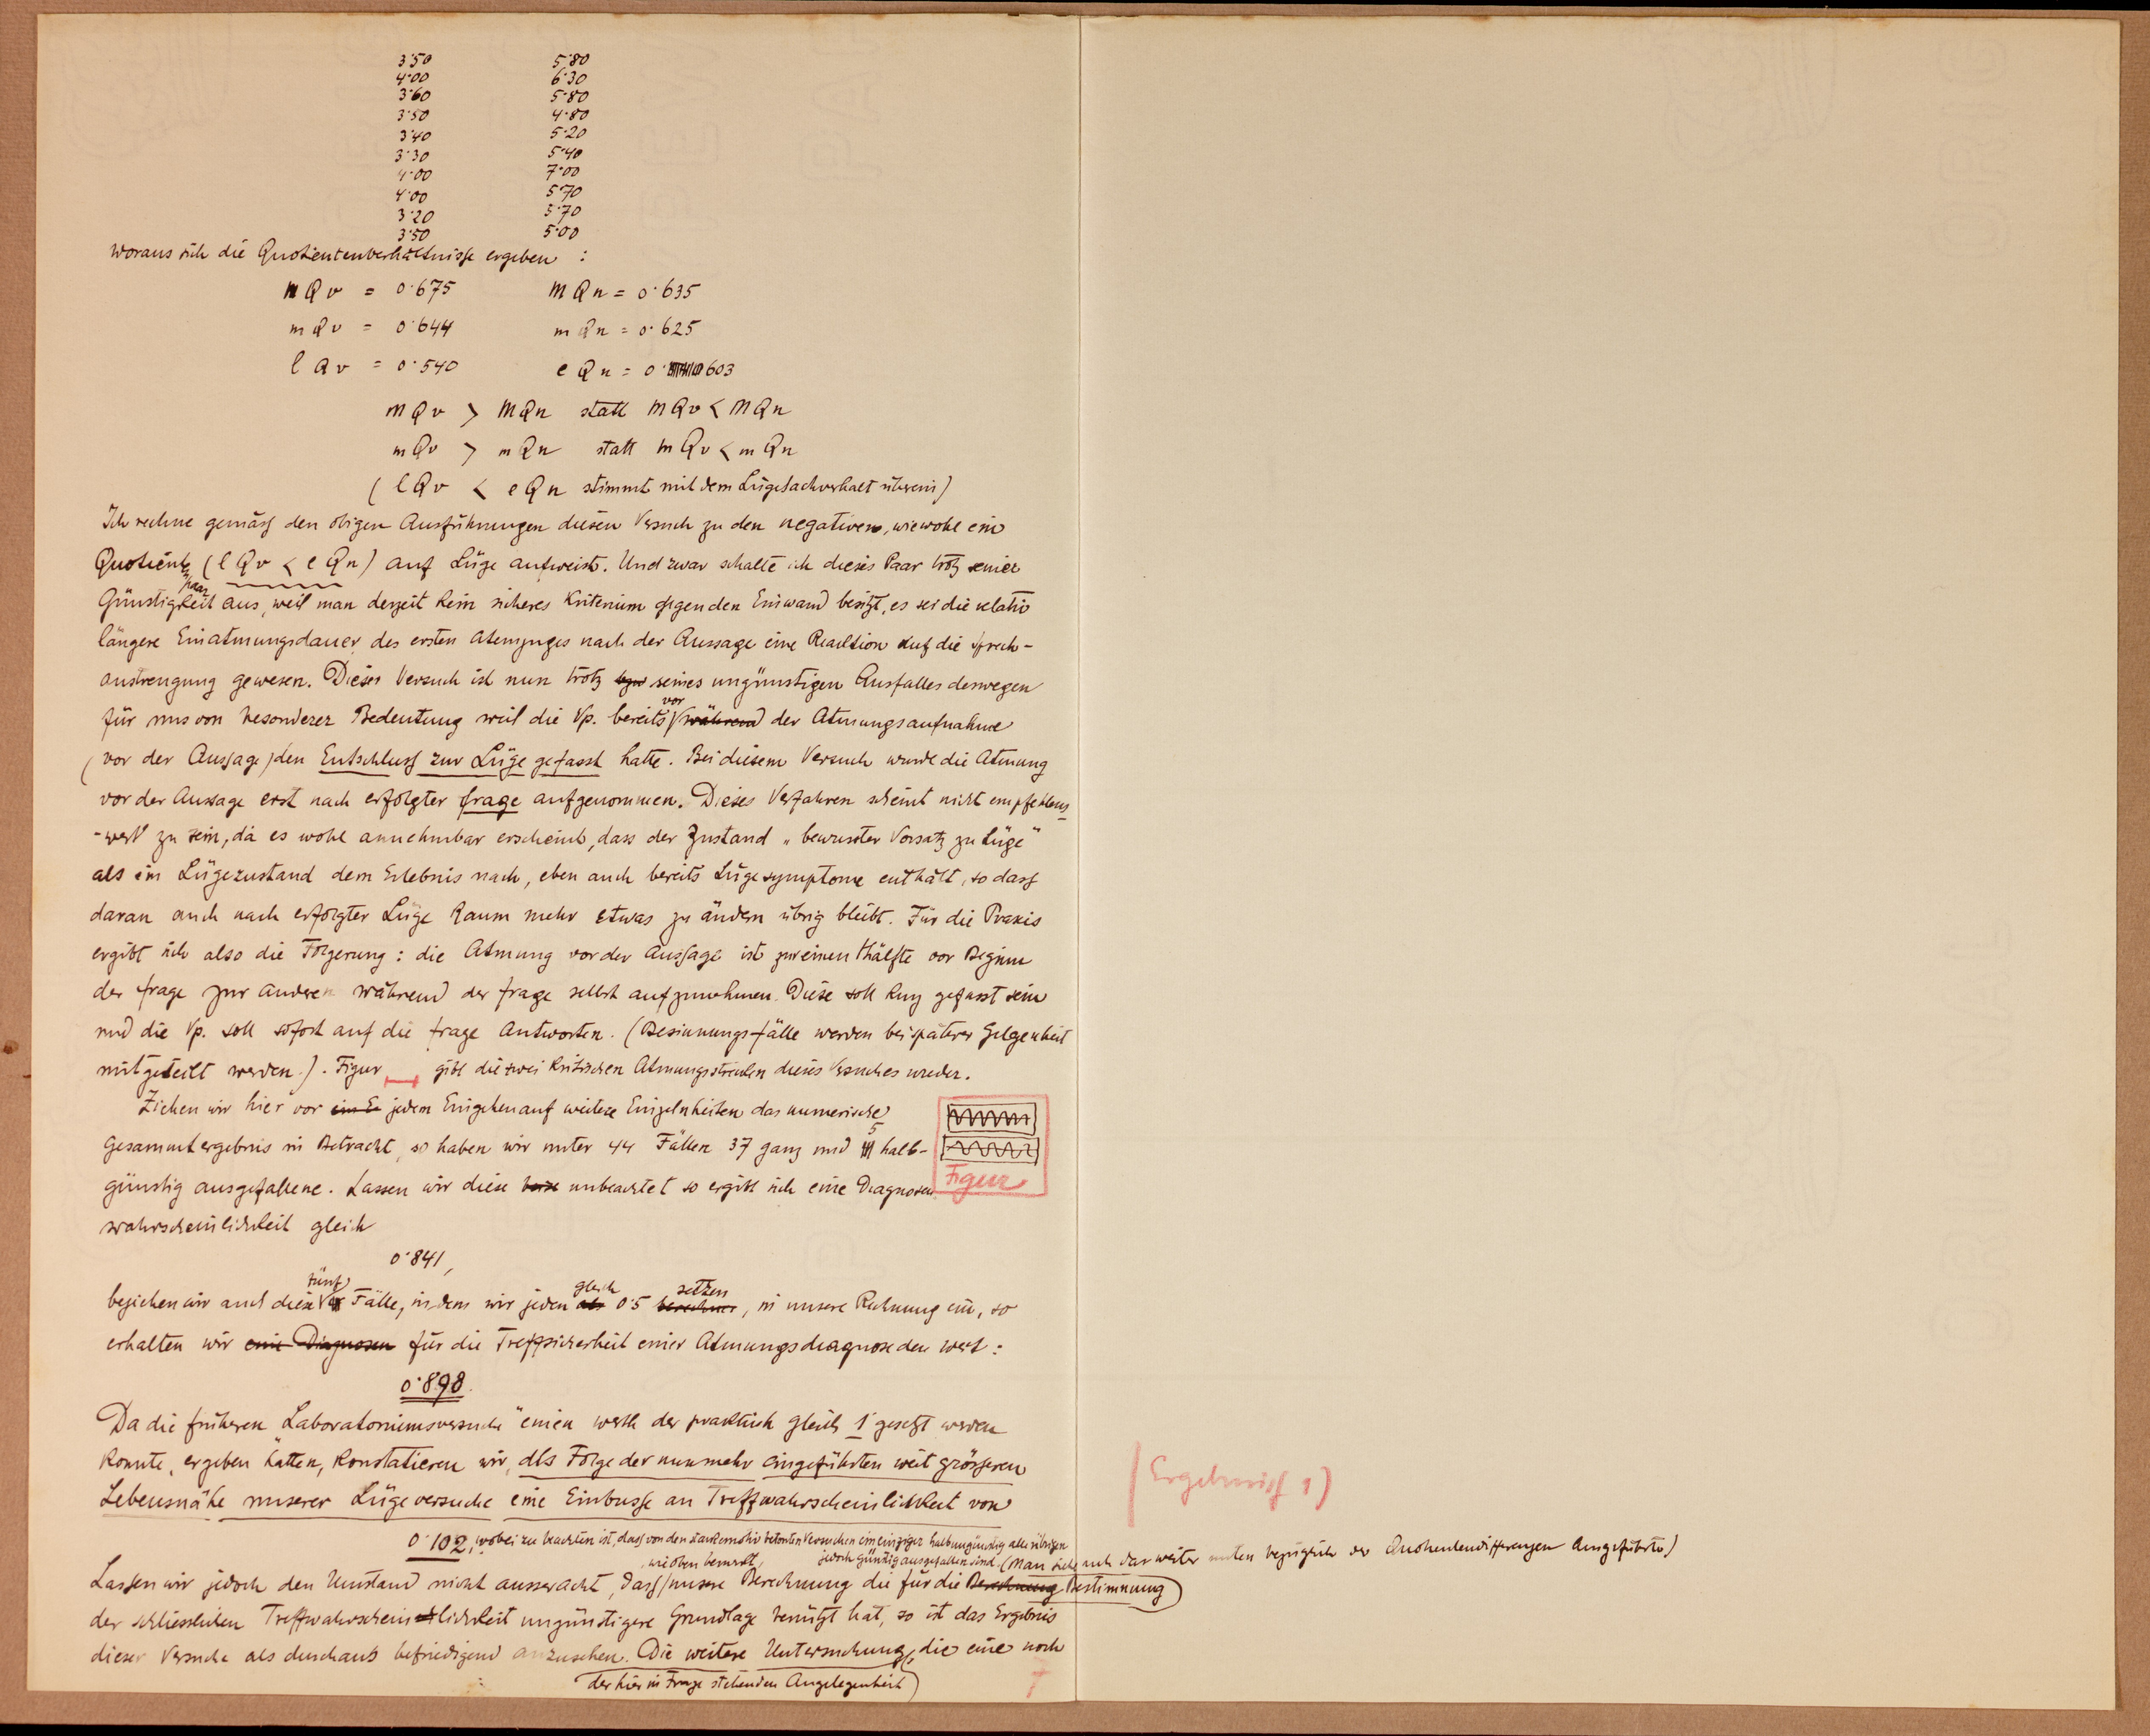 3·50 5·80
4·00 6·30
3·60 5·80
3·50 4·80
3·40 5·20
3·30 5·40
4·00 7·00
4·00 5·70
3·20 5·70
3·50 5·00
woraus sich die Quotientenverhältnisse ergeben :
MQv = 0·675 MQn = 0·635
mQv = 0·644 mQn = 0·625
lQv = 0·540 eQn = 0·603
MQv > MQn statt MQv < MQn
mQv > mQn statt mQv < mQn
(lQv < eQn stimmt mit dem Lügesachverhalt überein)
Ich rechne gemäss den obigen Ausführungen diesen Versuch zu den negativen, wiewohl ein
Quotienten (lQv < eQn) auf Lüge aufweist. Und zwar schalte ich dieses Paar trotz seiner
paar
Günstigkeit aus, weil man derzeit kein sicheres Kriterium gegen den Einwand besitzt, es sei die relativ
längere Einatmungsdauer des ersten Atemzuges nach der Aussage eine Reaktion auf die Sprech-
anstrengung gewesen. Dieser Versuch ist nun trotz seines ungünstigen Ausfalles deswegen
für uns von besonderer Bedeutung weil die Vp. bereits vor während der Atmungsaufnahme
(vor der Aussage) den Entschluss zur Lüge gefasst hatte. Bei diesem Versuch wurde die Atmung
vor der Aussage erst nach erfolgter Frage aufgenommen. Dieses Verfahren scheint nicht empfehlens
-wert zu sein, da es wohl annehmbar erscheint, dass der Zustand „bewusster Vorsatz zu Lüge"
als ein Lügezustand dem Erlebnis nach, eben auch bereits Lügesymptome enthält, so dass
daran auch nach erfolgter Lüge kaum mehr etwas zu ändern übrig bleibt. Für die Praxis
ergibt sich also die Folgerung : die Atmung vor der Aussage ist zur einen Hälfte vor Beginn
der Frage zur anderen während der Frage selbst aufzunehmen. Diese soll kurz gefasst sein
und die Vp. soll sofort auf die Frage antworten. (Besinnungs-fälle werden bei späterer Gelgenheit
mitgeteilt werden.). Figur gibt die zwei kritischen Atmungsstrecken dieses Versuches wieder.
Ziehen wir hier vor jedem Eingehen auf weitere Einzelnheiten das numerische
Gesammtergebnis in Betracht, so haben wir unter 44 Fällen 37 ganz und 5 halb-
günstig ausgefallene. Lassen wir diese unbeachtet so ergibt sich eine Diagnosen
Figur
wahrscheinlichkeit gleich
0·841,
beziehen wir auch diese fünf Fälle, indem wir jeden als gleich 0·5 berechnen setzen, in unsere Rechnung ein, so
erhalten wir eine Diagnosen für die Treffsicherheit einer Atmungsdiagnose den Wert :
0·898.
Da die früheren „Laboratoriumsversuche" einen Werth der praktisch gleich 1 gesetzt werden
konnte, ergeben hatten, konstatieren wir, als Folge der nunmehr eingeführten weit grösseren
Lebensnähe unserer Lügeversuche eine Einbusse an Treffwahrscheinlichkeit von
(Ergebniss 1)
0·102, wobei zu beachten ist, dass von den stark emotiv betonten Versuchen ein einziger halbungünstig alle übrigen
jedoch günstig ausgefallen sind. (Man siehe auch das weiter unten bezüglich der Quotientendifferenzen Ausgeführte)
wie oben bemerkt,
Lassen wir jedoch den Umstand nicht ausseracht, dass unsere Berechnung die für die Berechnung Bestimmung
der schliesslichen Treffwahrscheinlichkeit ungünstigere Grundlage benützt hat, so ist das Ergebnis
dieser Versuche als durchaus befriedigend anzusehen. Die weitere Untersuchung, die eine noch
der hier in Frage stehenden Angelegenheit